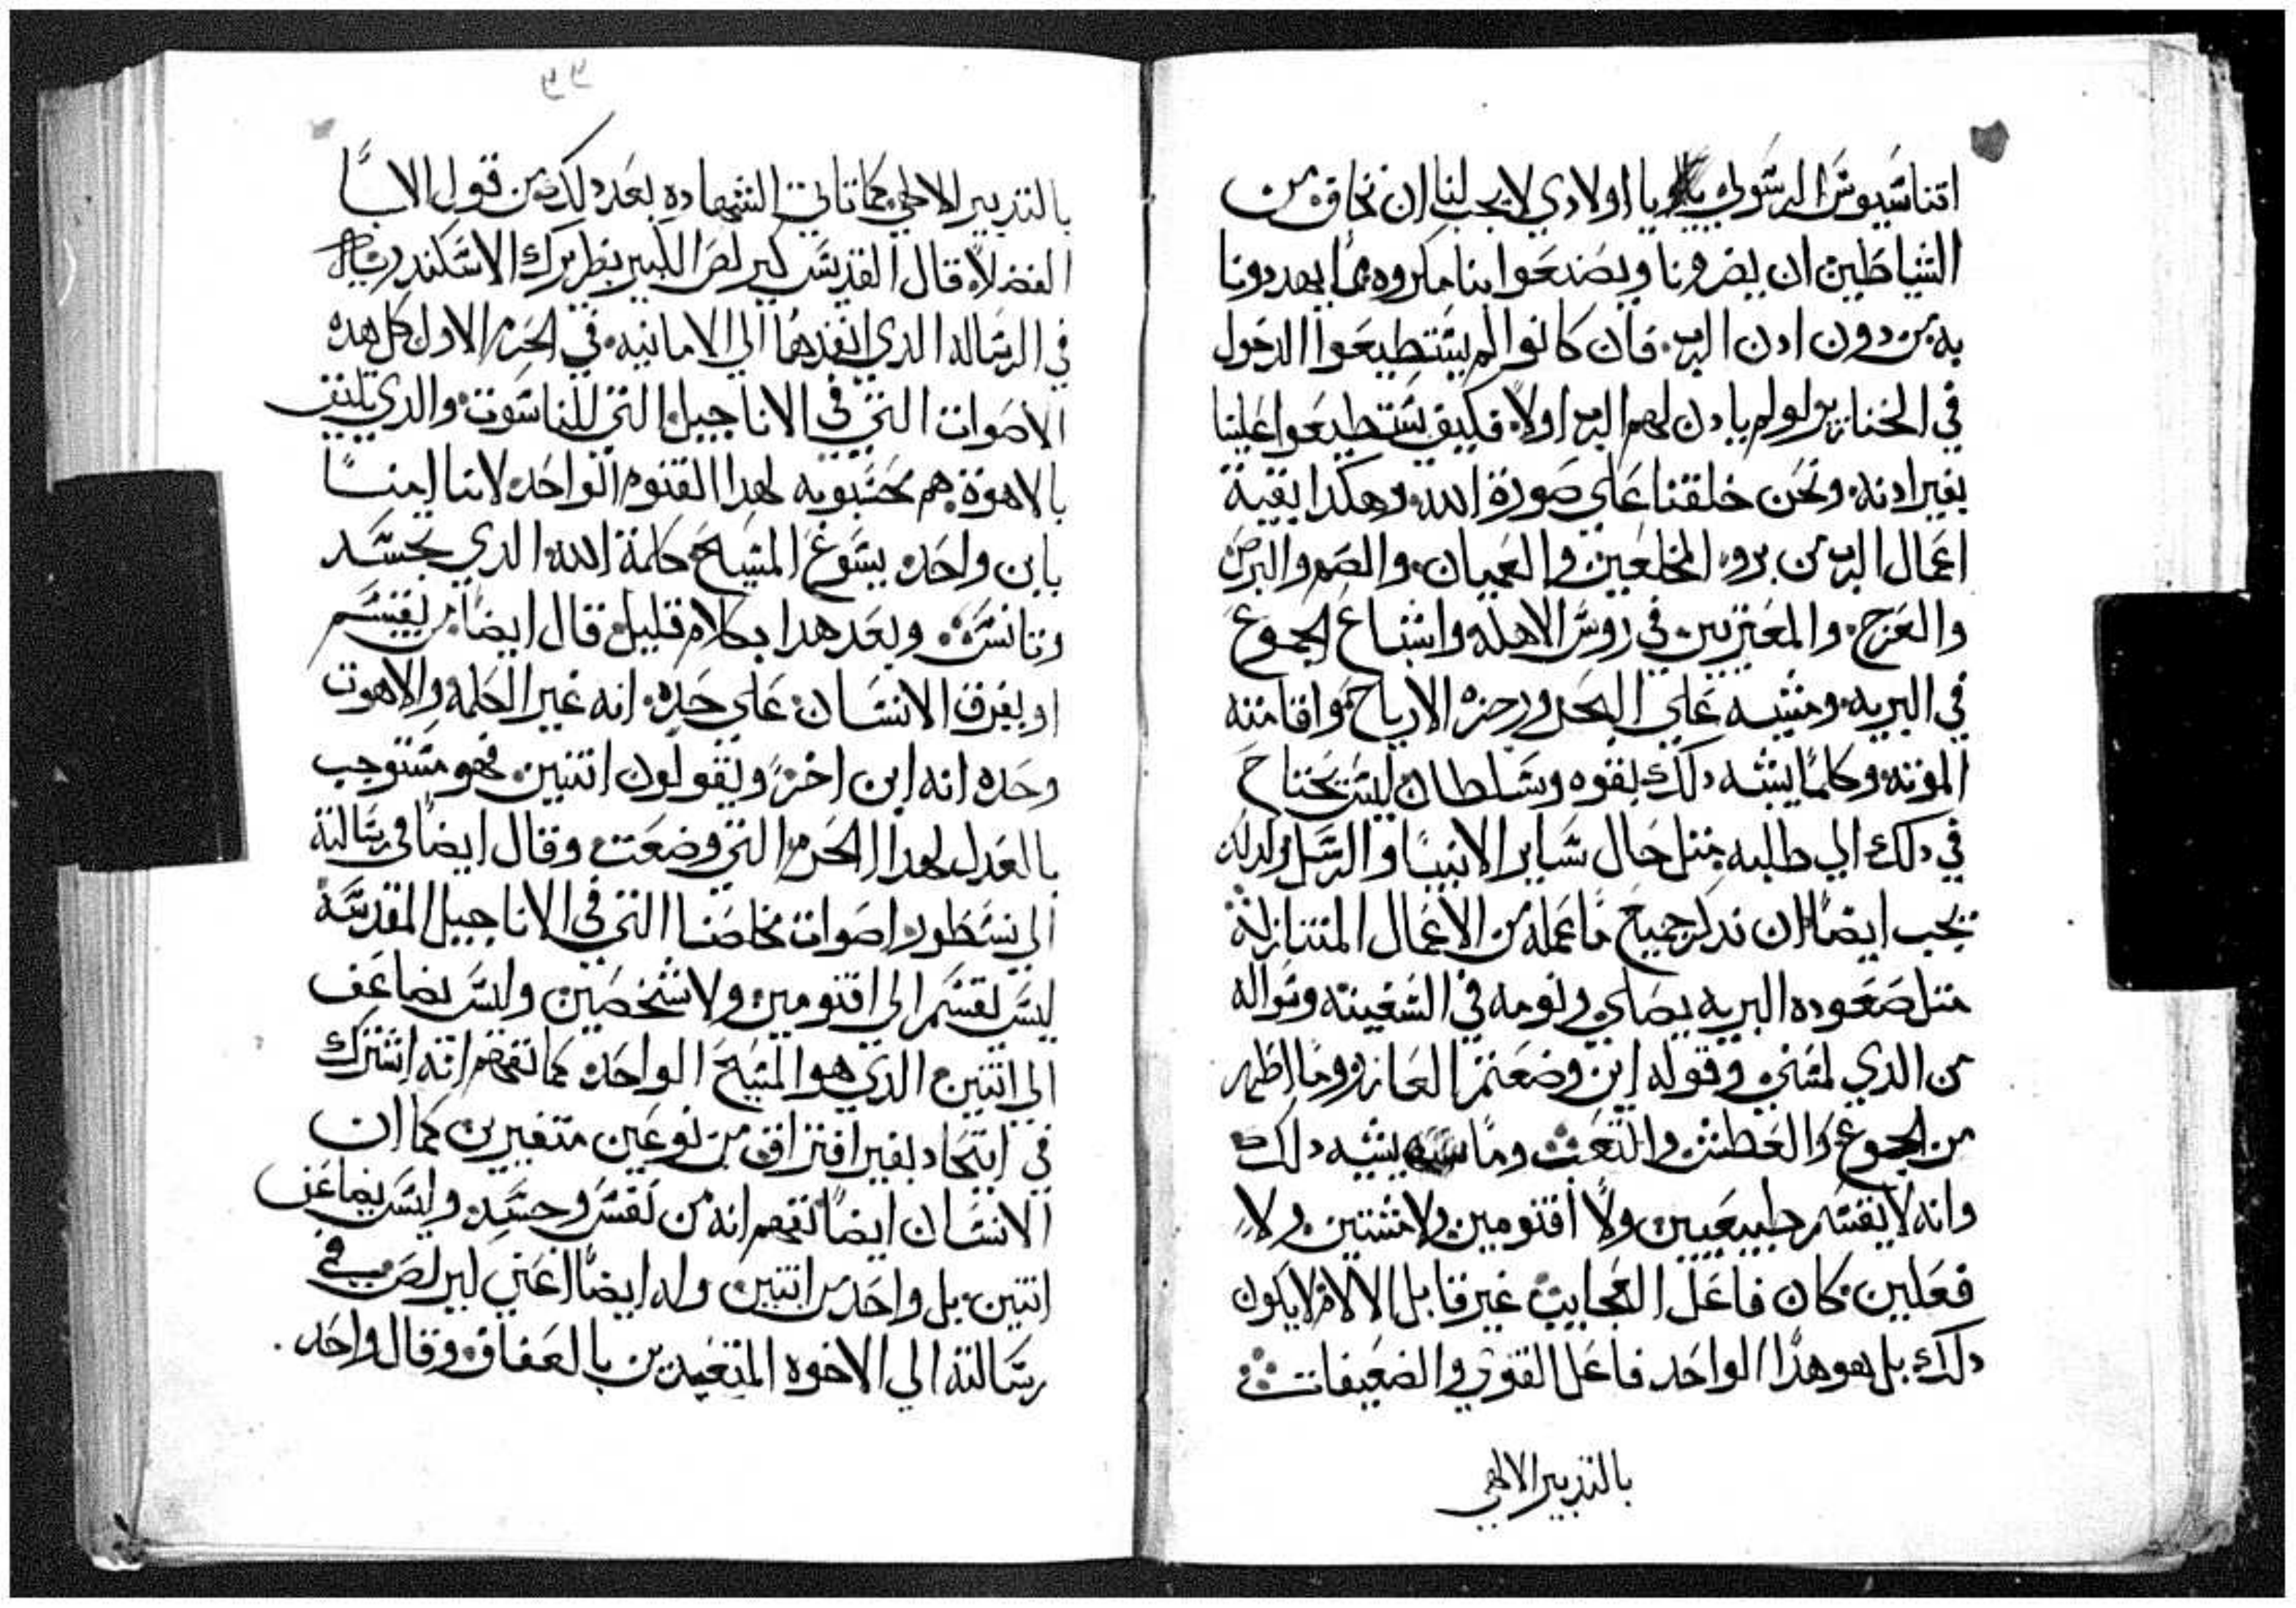 اتناسيوس الرسولي يا اولادي لا يجب لنا ان نخاف من
الشياطين ان يضرونا ويصنعوا بنا مكروه مما يهددونا
به من دون ادن الرب فان كانوا لم يستطيعوا الدخول
في الخنازير لو لم يادن لهم الرب اولاً فكيف يستطيعوا علينا
بغير ادنه ونحن خلقنا علي صورة الله وهكدا بقية
اعمال الرب من برو المخلعين والعميان والصم والبرص
والعرج والمعتريين في روس الاهله واشباع الجموع
في البريه ومشيه علي البحر وزجره الارياح واقامته
الموته وكلما يشبه دلك بقوه وسلطان ليس يحتاج
في دلك الي طلبه متل حال ساير الانبيا والرسل ولدلك
يجب ايضاً ان ندكر جميع ما عمله من الاعمال المتنازلة
متل صعوده البريه يصلي ونومه في السفينه وسواله
من الدي لمسني وقوله اين وضعتم العازر وما اظهر
من الجوع والعطش والتعب وما يشبه دلك
وانه لا يقسم طبيعيين ولا اقنومين ولا مشيتين ولا
فعلين كان فاعل العجايب غير قابل الالام لا يكون
دلك بل هو هدا الواحد فاعل القوي والضعيفات
بالتدبير الالهي
٩٩
بالتدبير الالهي كما تاتي الشهاده بعد دلك من قول الابا
الفضلا قال القديس كيرلص الكبير بطريرك الاسكندريه
في الرساله الدي انفدها الي الامانيه في الحرم الاول كل هده
الاصوات التي في الاناجيل التي للناسوت والدي تليق
بالاهوة هم محسوبه لهدا القنوم الواحد لاننا امنا
بابن واحد يسوع المسيح كلمة الله الدي تجسد
وتانس وبعد هدا بكلام قليل قال ايضا من يقسم
او يفرق الانسان علي حده انه غير الكلمه والاهوت
وحده انه ابن اخر ويقولون اتنين فهو مستوجب
بالعدل لهدا الحرم التي وضعت وقال ايضا في رسالته
الي نسطور اصوات مخلصنا التي في الاناجيل المقدسة
ليس نقسم الي اقنومين ولا شخصين وليس يضاعف
الي اتنين الدي هو المسيح الواحد كما نفهم انه اشترك
في اتحاد بغير افتراق من نوعين متغيرين كما ان
الانسان ايضاً نفهم انه من نفس وجسد وليس يضاعف
اتنين بل واحد من اتنين وله ايضاً اعني كيرلص في
رسالته الي الاخوه المتعبدين بالعفاف وقال واحد